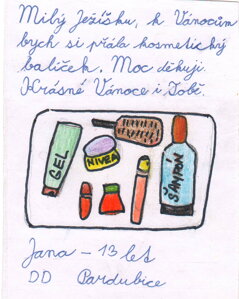 Milý Ježíšku, k Vánocům
bych si přála kosmetický
balíček. Moc děkuji.
Krásné Vánoce i Tobě.
GEL
NIVEA
ŠAMPÓN
Jana - 13 let
DD Pardubice